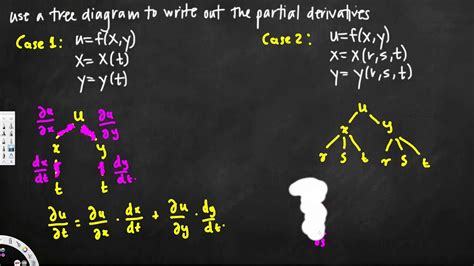 use a tree diagram to write out the partial derivatives
Case 1: u=f(x,y)
x=x(t)
y=y(t)
Case 2: u=f(x,y)
x=x(r,s,t)
y=y(r,s,t)
∂u/∂x u ∂u/∂y
x y
dx/dt dy/dt
t t
∂u/∂t = ∂u/∂x · dx/dt + ∂u/∂y · dy/dt.
u
x y
r s t r s t